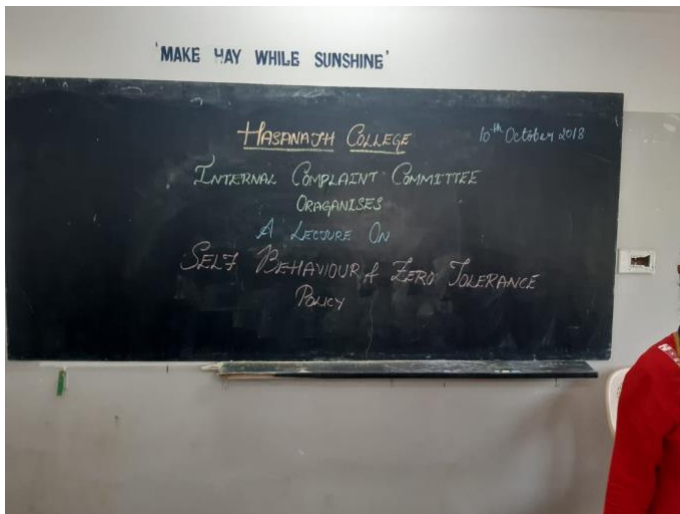 'MAKE HAY WHILE SUNSHINE'
HASANATH COLLEGE
10th October 2018
INTERNAL COMPLAINT COMMITTEE
ORAGANISES
A LECTURE ON
SELF BEHAVIOUR & ZERO TOLERANCE
POLICY